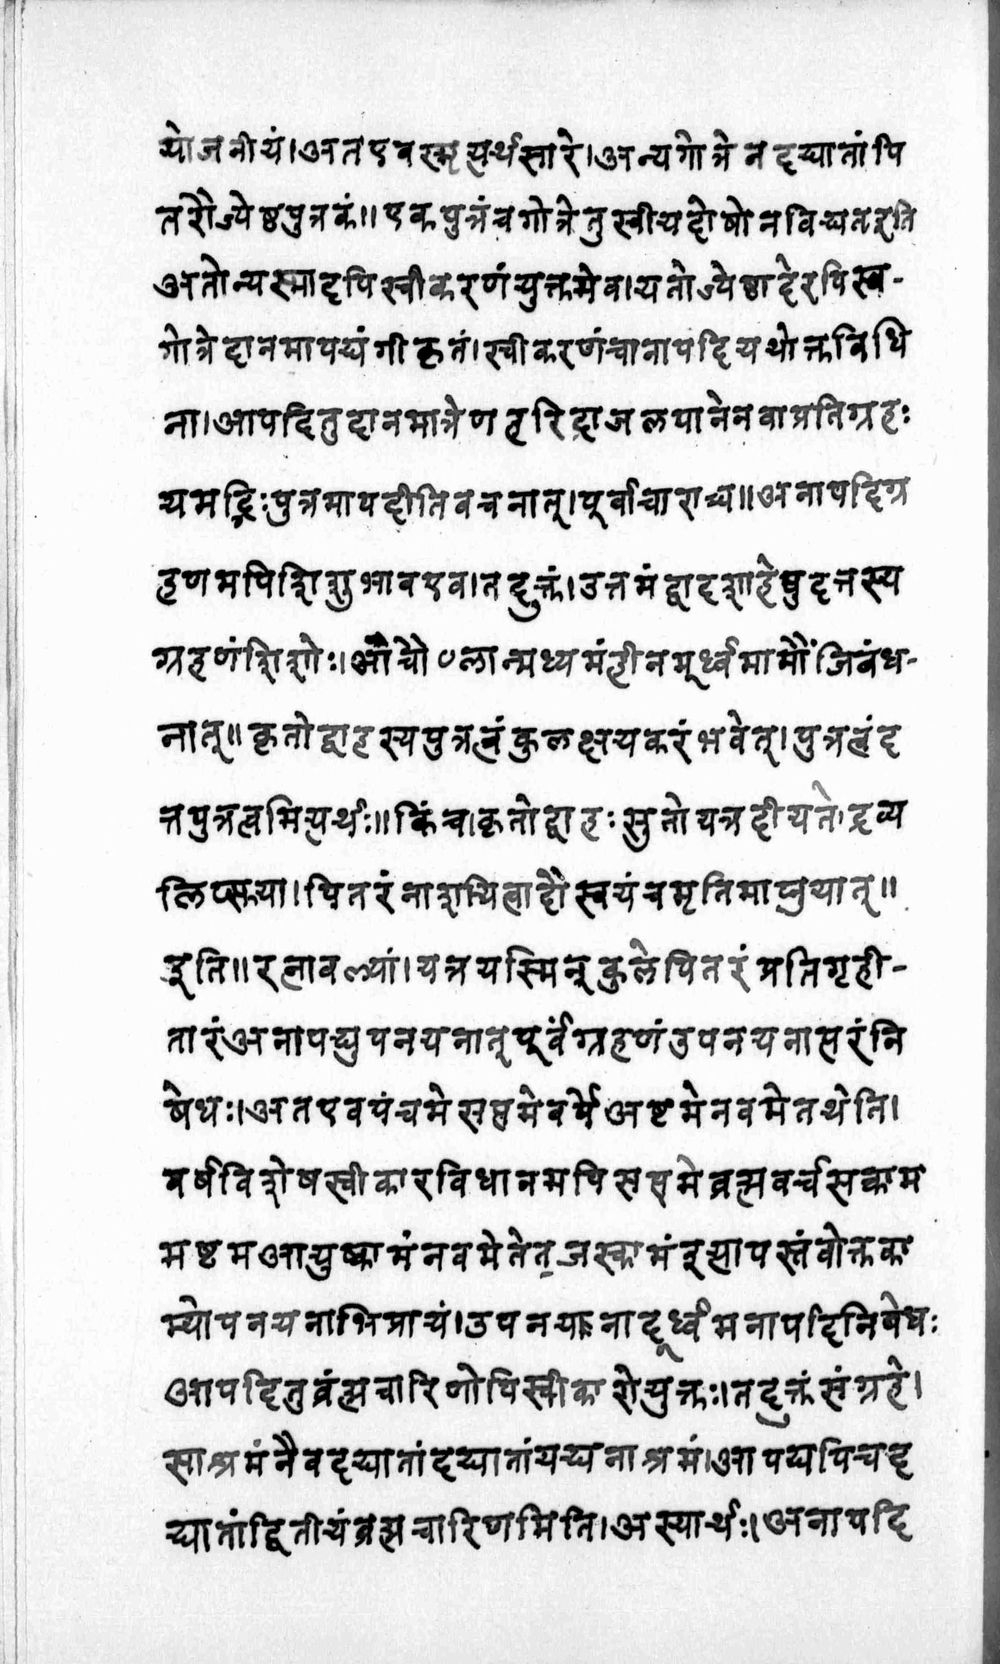 योजनीयं।अतएवस्मृत्यर्थसारे।अन्यगोत्रेनदद्यातांपि
तरौज्येष्ठपुत्रकं॥एकपुत्रंचगोत्रेतुस्वीयदोषोनविद्यतइति
अतोन्यस्मादपिस्वीकरणंयुक्तमेव।यतोज्येष्ठादेरपिस्व-
गोत्रेदानमापद्यंगीकृतं।स्वीकरणंचानापदियथोक्तविधि
ना।आपदितुदानमात्रेणहरिद्राजलपानेनवाप्रतिग्रहः
यमद्भिःपुत्रमापदीतिवचनात्।पूर्वाचाराच्च॥अनापदिग्र
हणमपिशिशुभावएव।तदुक्तं।उत्तमंद्वादशाहेषुदत्तस्य
ग्रहणंशिशोः।आचौ०लान्मध्यमंहीनमूर्ध्वमामौंजिबंध-
नात्॥कृतोद्वाहस्यपुत्रत्वंकुलक्षयकरंभवेत्।पुत्रत्वंद
त्तपुत्रत्वमित्यर्थः॥किंच।कृतोद्वाहःसुतोयत्रदीयतेद्रव्य
लिप्सया।पितरंनाशयित्वादौस्वयंचमृतिमाप्नुयात्॥
इति॥रत्नावल्यां।यत्रयस्मिन्कुलेपितरंप्रतिगृही-
तारंअनापद्युपनयनात्पूर्वंग्रहणंउपनयनात्परंनि
षेधः।अतएवपंचमेसप्तमेवर्षेअष्टमेनवमेतथेति।
वर्षविशेषस्वीकारविधानमपिसप्तमेब्रह्मवर्चसकाम
मष्टमआयुष्कामंनवमेतेजस्कामंइत्यापस्तंबोक्तका
म्योपनयनाभिप्रायं।उपनयनादूर्ध्वमनापदिनिषेधः
आपदितुब्रंह्मचारिणोपिस्वीकारोयुक्तः।तदुक्तंसंग्रहे।
साश्रमंनैवदद्यातांदद्यातांयद्यनाश्रमं।आपद्यपिचद
द्यातांद्वितीयंब्रह्मचारिणमिति।अस्यार्थः।अनापदि